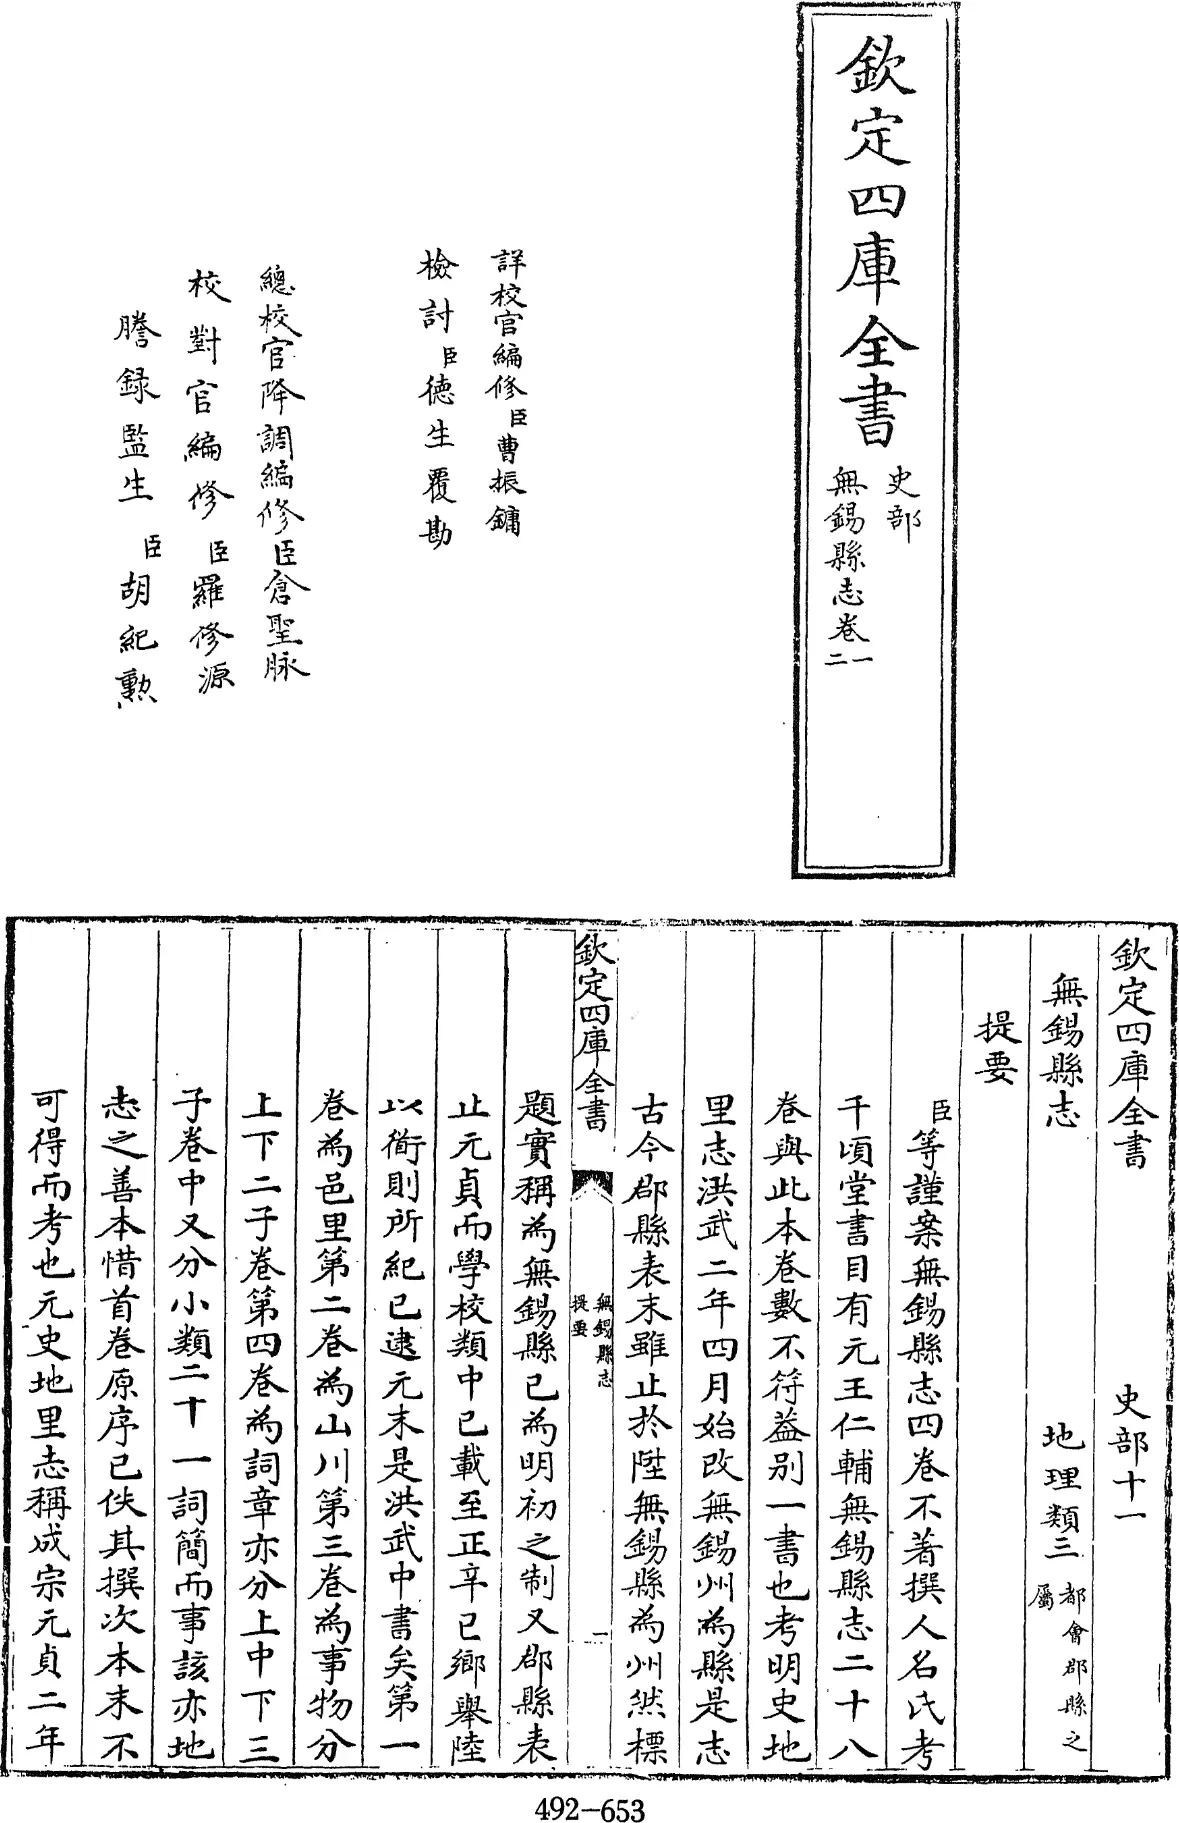 欽定四庫全書
史部
無錫縣志卷一
二
詳校官編修臣曹振鏞
檢討臣德生覆勘
總校官降調編修臣倉聖脉
校對官編修臣羅修源
謄録監生臣胡紀勲
欽定四庫全書
史部十一
無錫縣志
地理類三
都會郡縣之
屬
提要
臣等謹案無錫縣志四卷不著撰人名氏考
千頃堂書目有元王仁輔無錫縣志二十八
卷與此本卷數不符葢别一書也考明史地
里志洪武二年四月始改無錫州為縣是志
古今郡縣表末雖止於陞無錫縣為州然標
欽定四庫全書
無錫縣志
提要
一
題實稱為無錫縣已為明初之制又郡縣表
止元貞而學校類中已載至正辛巳鄉舉陸
以衜則所紀已逮元末是洪武中書矣第一
卷為邑里第二卷為山川第三卷為事物分
上下二子卷第四卷為詞章亦分上中下三
子卷中又分小類二十一詞簡而事該亦地
志之善本惜首卷原序已佚其撰次本末不
可得而考也元史地里志稱成宗元貞二年
492-653